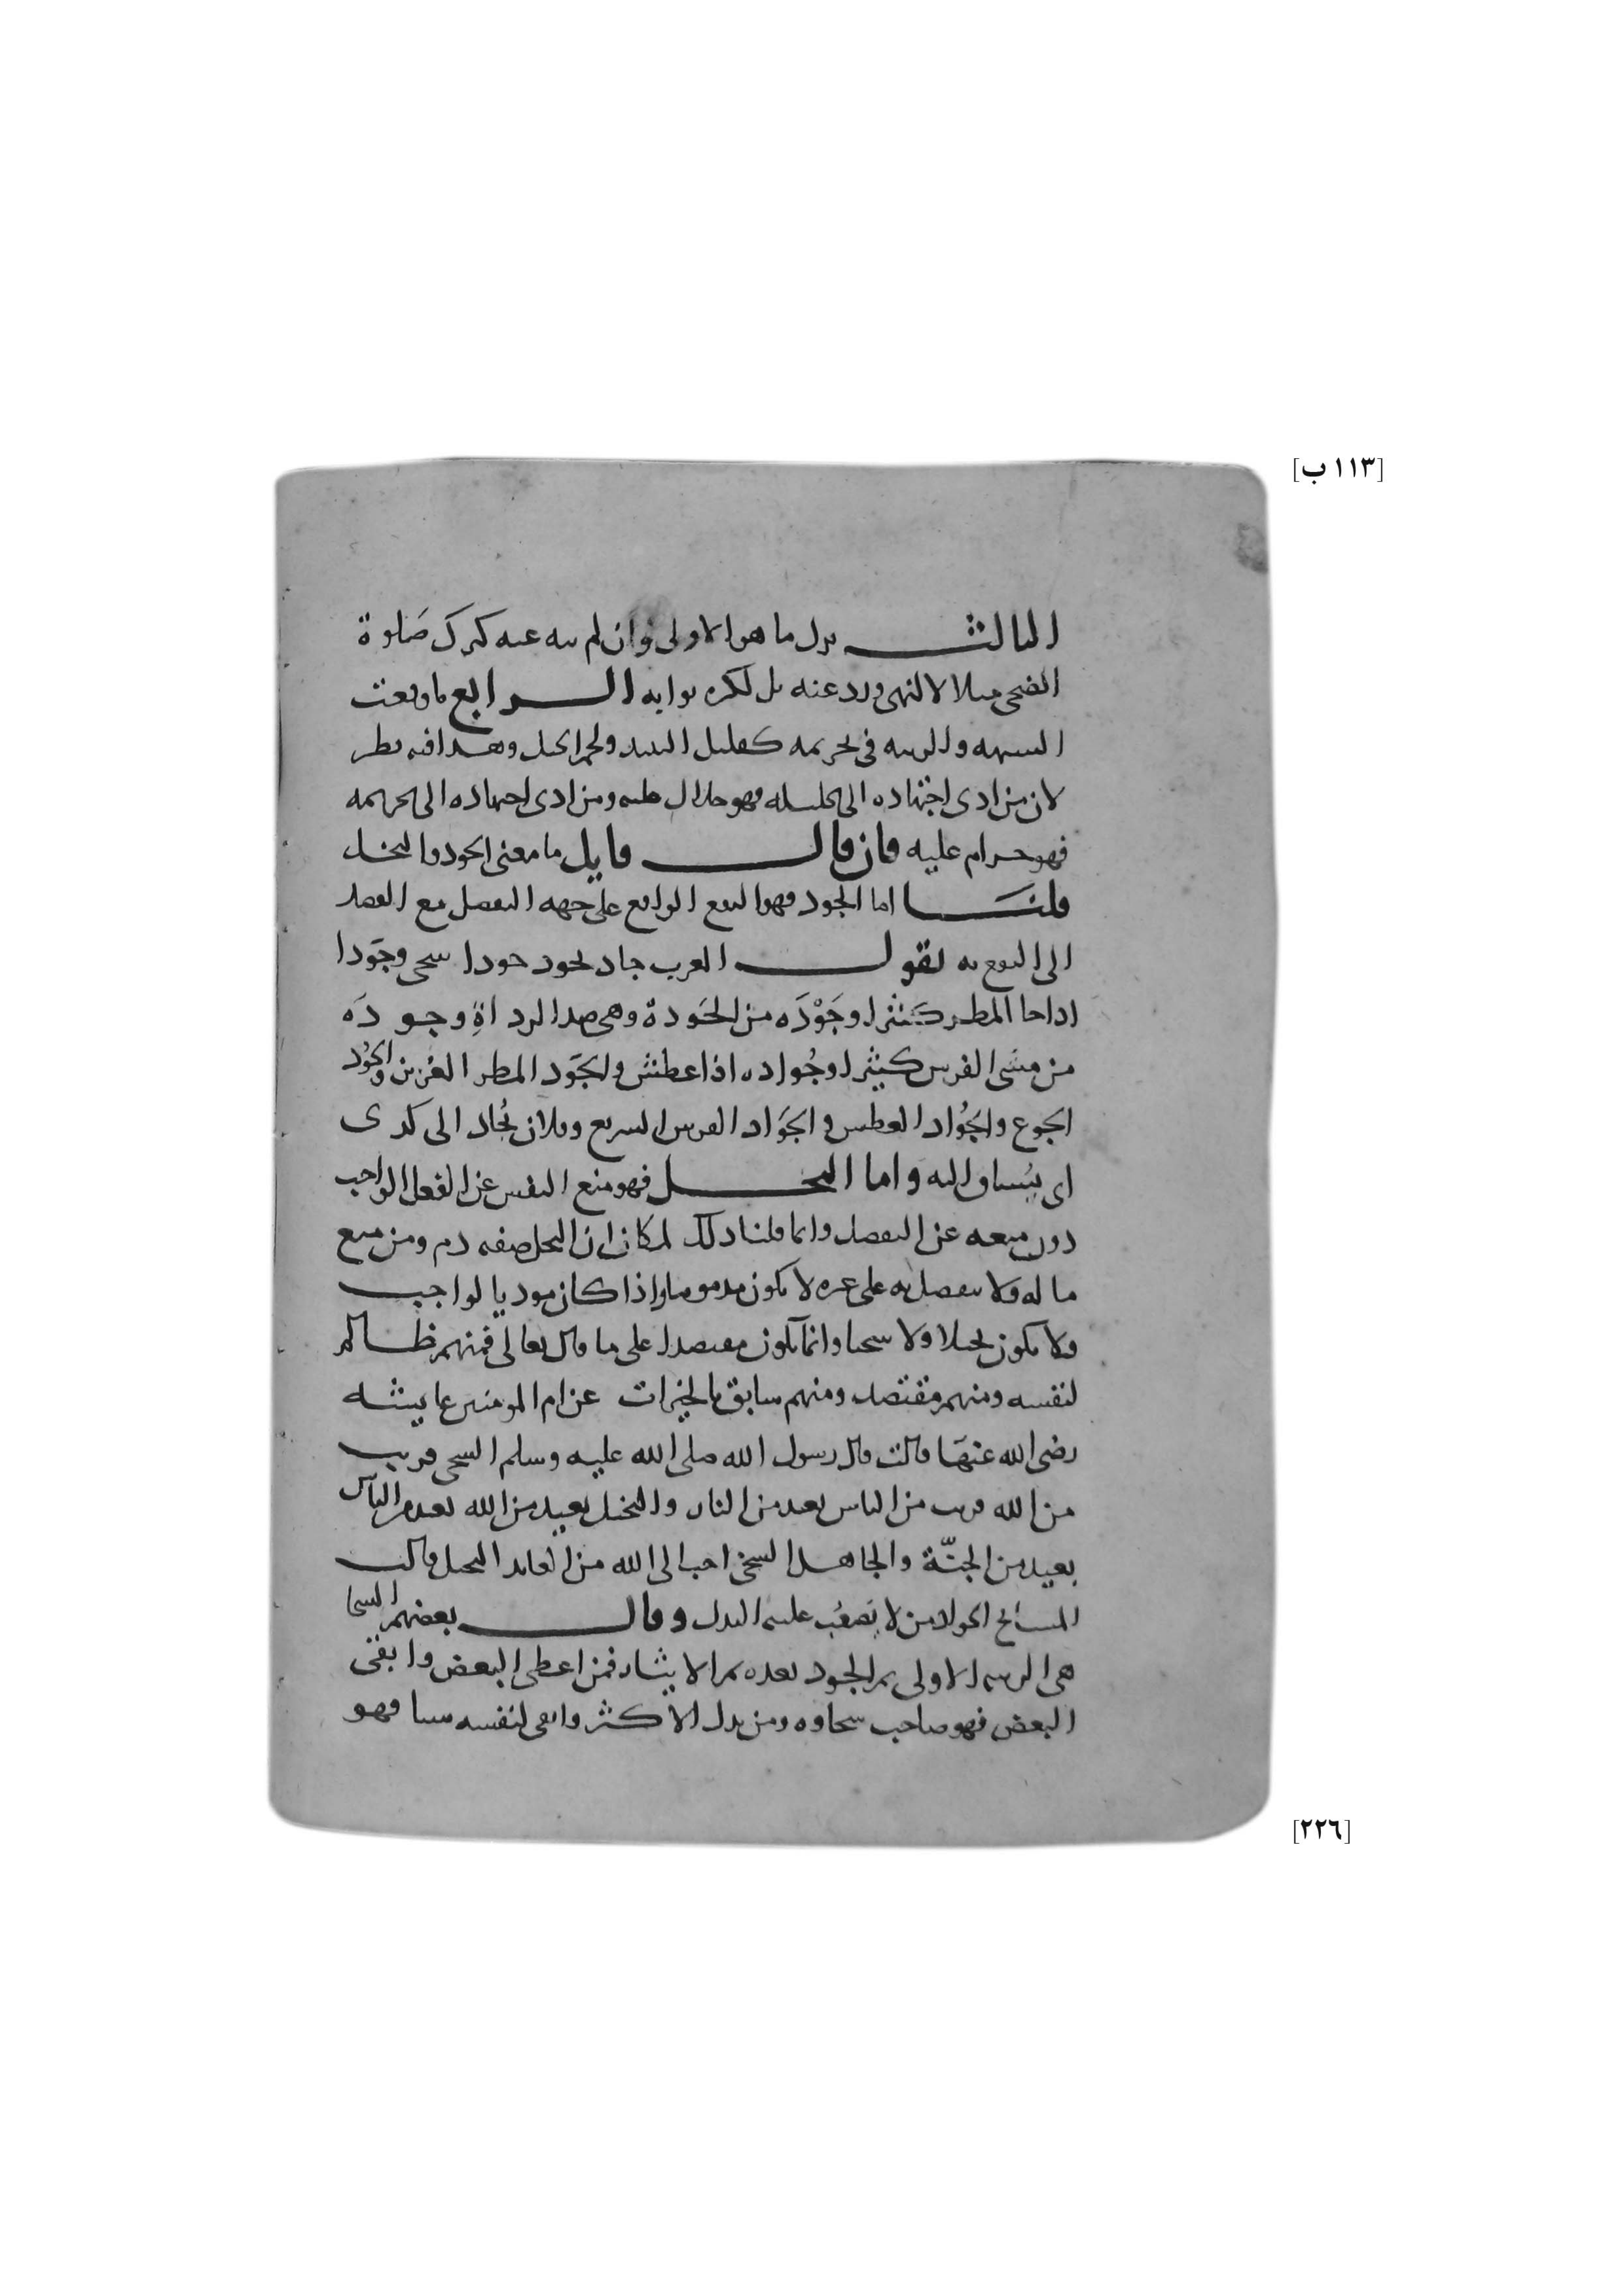 [١١٣ ب]
الثالث ترك ما هو الاولى وان لم ينه عنه كترك صلوة
الضحى مثلا لا لنهي ورد عنه بل لكثره ثوابه الرابع ما وقعت
الشبهه والريبه في تحريمه كقليل النبيذ ولحم الخيل وهذا فيه نظر
لان من ادى اجتهاده الى تحليله فهو حلال عليه ومن ادى اجتهاده الى تحريمه
فهو حرام عليه فان قال قايل ما معنى الجود والبخل
قلنا اما الجود فهو النفع الواقع على جهه التفضل مع القصد
الى النفع به تقول العرب جاد يجود جودا سخى وجَودا
اذا جا المطر كثيرا وجَوْدَه من الجَودة وهى ضد الرداةِ وجودَه
من مشى الفرس كثيرا وجُواده اذا عطش والجَود المطر الغزير والجُود
الجوع والجُواد العطش والجَواد الفرس السريع وفلان يُجاد الى كذى
اى يُساق اليه واما البخل فهو منع النفس عن الفعل الواجب
دون منعه عن التفضل وانما قلنا ذلك لمكان ان البخل صفه ذم ومن منع
ماله ولا يتفضل به على غيره لا يكون مذموما واذا كان موديا لواجب
ولا يكون بخيلا ولا سخيا وانما يكون مقتصدا على ما قال تعالى فمنهم ظالم
لنفسه ومنهم مقتصد ومنهم سابق بالخيرات عن ام المومنين عايشه
رضى الله عنها قالت قال رسول الله صلى الله عليه وسلم السخى قريب
من الله قريب من الناس بعيد من النار والبخيل بعيد من الله بعيد من الناس
بعيد من الجنّة والجاهل السخى احب الى الله من العابد البخيل قالت
المشايخ الجواد من لا يَصعُب عليه البذل وقال بعضهم السخا
هى الرتبه الاولى ثم الجود بعده ثم الايثار فمن اعطى البعض وابقى
البعض فهو صاحب سخاوه ومن بذل الاكثر وابقى لنفسه شيا فهو
[٢٢٦]